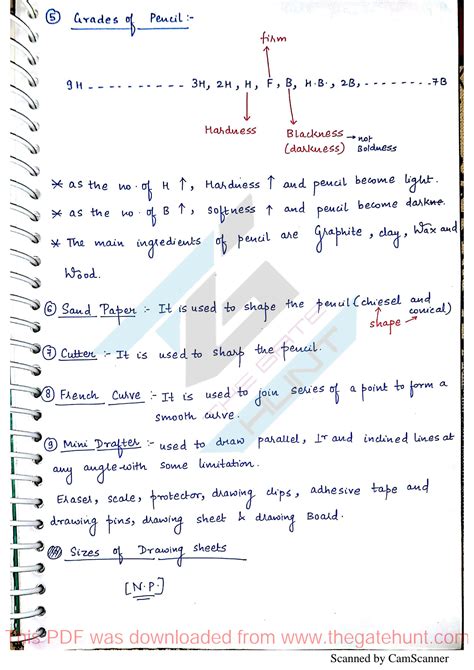 ⑤ Grades of Pencil :-
firm
9H ---------- 3H, 2H, H, F, B, H.B., 2B, --------- 7B
Hardness
Blackness → not
(darkness) Boldness
* as the no. of H ↑, Hardness ↑ and pencil become light.
* as the no. of B ↑, Softness ↑ and pencil become darkne.
* The main ingredients of pencil are Graphite, clay, Wax and
Wood.
⑥ Sand Paper :- It is used to shape the pencil (chiesel and
conical)
shape
⑦ Cutter :- It is used to sharp the pencil.
⑧ French Curve :- It is used to join series of a point to form a
smooth curve.
⑨ Mini Drafter :- used to draw parallel, Ir and inclined lines at
any angle with some limitation.
Eraser, scale, protector, drawing clips, adhesive tape and
drawing pins, drawing sheet & drawing Board.
Sizes of Drawing sheets
[N.P.]
THE GATE
HUNT
This PDF was downloaded from www.thegatehunt.com
Scanned by CamScanner